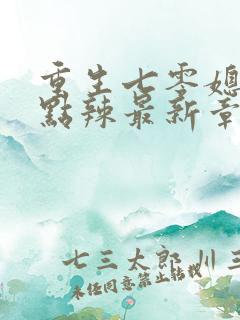 重生七零媳
點辣最新章
七三太郎 川 三
未经同意禁止转载